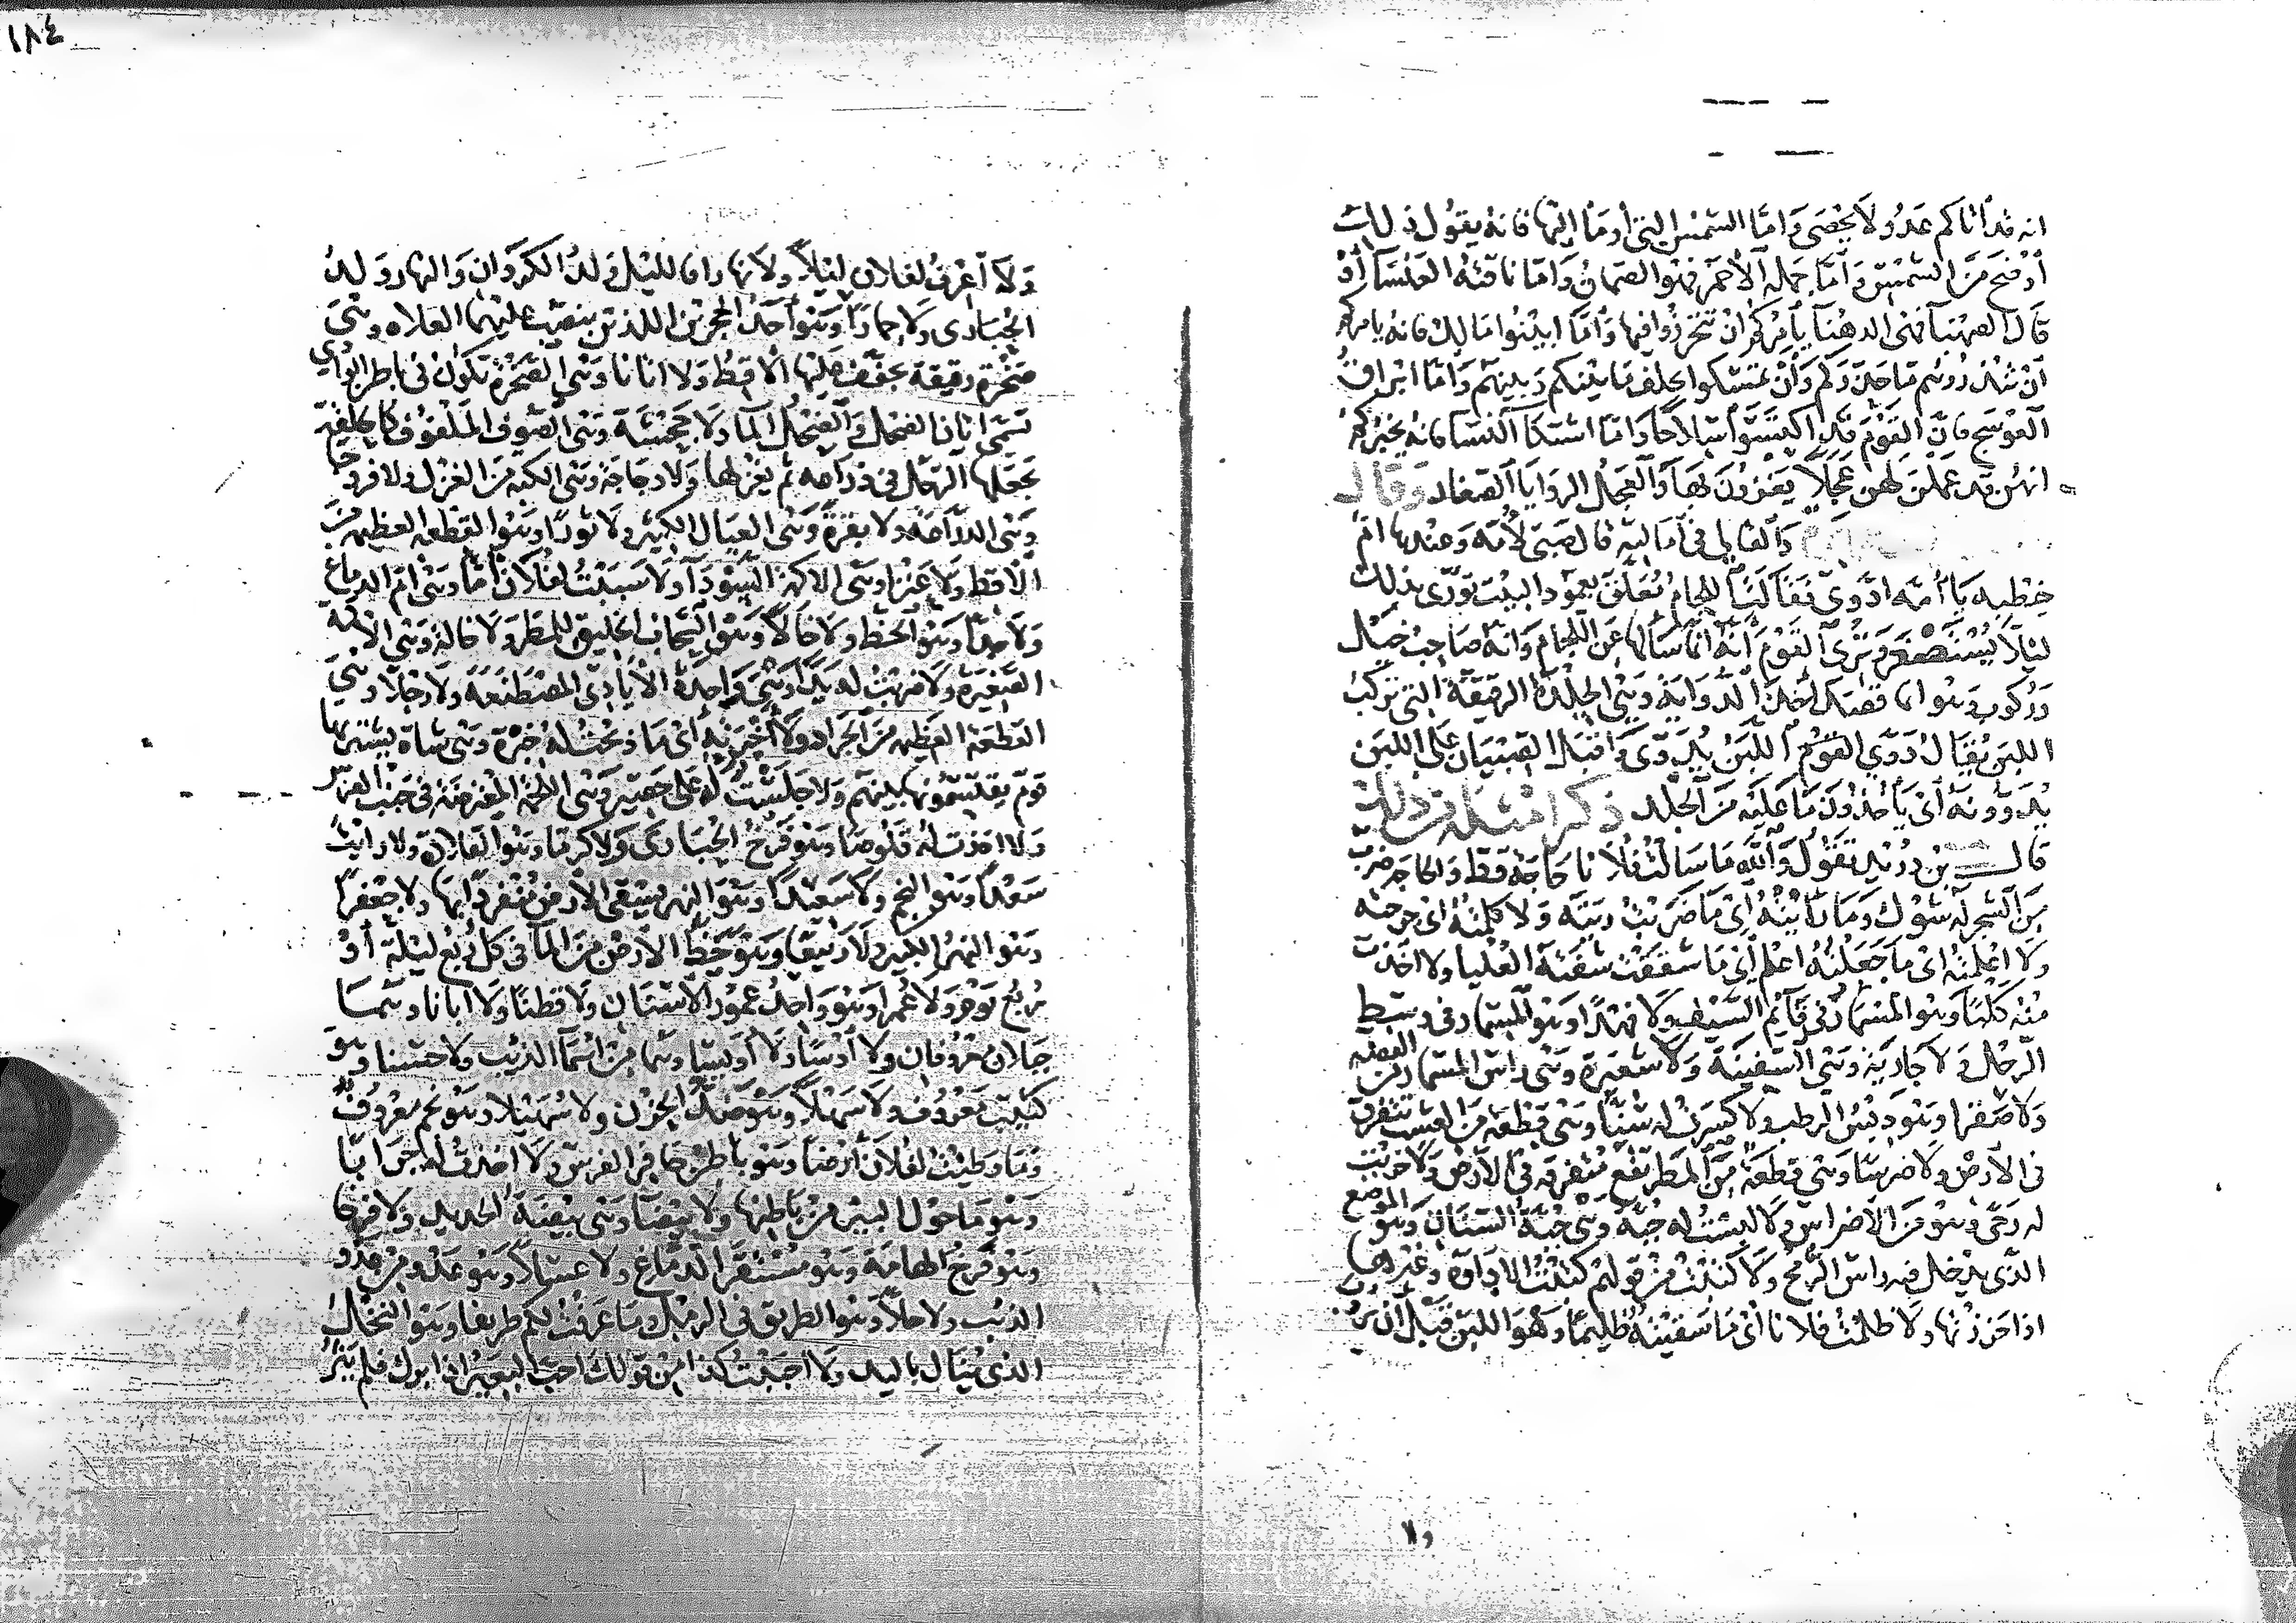 ١٨٤
انه قد أتاكم عدو لا يحصى وأما الشمس التي أومأ إليها فانه يقول ذلك
أوضح من الشمس وأما جمله الأحمر فهو الصمان وأما ناقته العلسا أو
قال الصهبا فهي الدهنا يأمركم ان تتحرزوا فيها وأما ابينوا مالك فانه يامركم
أن تنذروهم ما حذركم وأن تمسكوا بحلف ما بينكم وبينهم وأما ايراق
العوسج فان القوم قد اكتسوا سلاحا وأما اشتكا النسا فانه يخبركم
انهن قد عملن لهن عجلا يغزون بها والعجل الروايا الصغار وقال
والقالي في أماليه قال صبي لأمه وعندها ام
خطبه يا أمه ادوي فقالت اللجام معلق بعمود البيت تورى بذلك
ليلا يستصغر وترى القوم أنه انما سألها عن اللجام وانه صاحب خيل
وركوب وهو انما قصد أخذ الدواية وهي الجلدة الرقيقة التي تركب
اللبن يقال دوى القوم اللبن يدوى واقبل الصبيان على اللبن
يدوونه أي يأخذون ما عليه من الجلد ذكر امثلة من ذلك
قال بن دريد تقول والله ما سالت فلانا حاجة قط والحاجه ضرب
من الشجر له شوك وما رأيته أي ما ضربت ريته ولا كلمته أي جرحته
ولا اعلمته اي ما جعلته اعلم أي ما شققت شفته العليا ولا اخذت
منه كلبا وهو المسمار في قائم السيف ولا فهدا وهو المسمار في وسط
الرحل ولا جارية وهي السفينة ولا شعيرة وهي راس المسمار من الفضه
ولا صقرا وهو دبس الرطب ولا كسرت له سنا وهي قطعة من العشب تتفرق
في الأرض ولا ضرسا وهي قطعة من المطر تقع متفرقه في الأرض ولا خربت
له رحى وهو من الأضراس ولا لبست له جبة وهي جبة السنان وهو الموضع
الذي يدخل فيه راس الرمح ولا كتبت من قولهم كتبت الاداوة وغيرها
اذا خرزتها ولا ظلمت فلانا أي ما سقيته ظليما وهو اللبن قبل أن يروب
ولا
ولا أعرف لفلان ليلا ولا نهارا فالليل ولد الكروان والنهار ولد
الحبارى ولا حمارا وهو أحد الحجرين اللذين ينصب عليهما العلاه وهي
صخرة رقيقة يجفف عليها الاقط ولا اتانا وهي الصخرة تكون في باطن الوادي
تسمى اتان الضحل والضحل الما ولا جحشة وهي الصوف الملفوف كالحلقة
يجعلها الرجل في ذراعه ثم يغزلها ولا دجاجة وهي الكبه من الغزل ولا فروجا
وهي الدراعة ولا بقرة وهي العيال الكثير ولا ثورا وهو القطعه العظيمه من
الاقط ولا عنزا وهي الاكمة السودا ولا سببت لفلان أما وهي ام الدماغ
ولا جدا وهو الحظ ولا خالا وهو السحاب الخليق للمطر ولا خالة وهي الاكمة
الصغيرة ولا ضربت له يدا وهي واحدة الأيادي المصطنعة ولا رجلا وهي
القطعة العظيمه من الجراد ولا أخبرته أي ما ذبحت له خبرة وهي شاة يشتريها
قوم يقتسمونها بينهم ولا جلست له على حصير وهي اللحمه المعترضة في جنب الفرس
ولا اخذت له قلوصا وهو فرخ الحبارى ولا كرما وهو القلادة ولا رايت
سعدا وهو النجم ولا سعيدا وهو النهر يسقى الأرض منفردا بها ولا جعفرا
وهو النهر الكبير ولا ربيعا وهو حظ الأرض من الما في كل ربع ليلة أو
ربع يوم ولا عمرا وهو واحد عمور الأسنان ولا قطنا ولا ابانا وهما
جبلان معروفان ولا أوسا ولا أويسا وهما من اسما الذئب ولا حسنا وهو
كثيب معروف ولا سهلا وهو ضد الحزن ولا سهيلا وهو نجم معروف
وما وطيت لفلان أرضا وهو باطن حافر الفرس ولا اخذت له جرابا
وهو ما حول البير من باطنها ولا بيضا وهي بيضة الحديد ولا فرخا
وهو فرخ الهامة وهو مستقر الدماغ ولا عسلا وهو عدو من عدو
الذئب ولا خلا وهو الطريق في الرمل وما عرفت لكم طريقا وهو النخل
الذي ينال باليد ولا احببت كذا من قولك احب البعير اذا برك فلم يثر